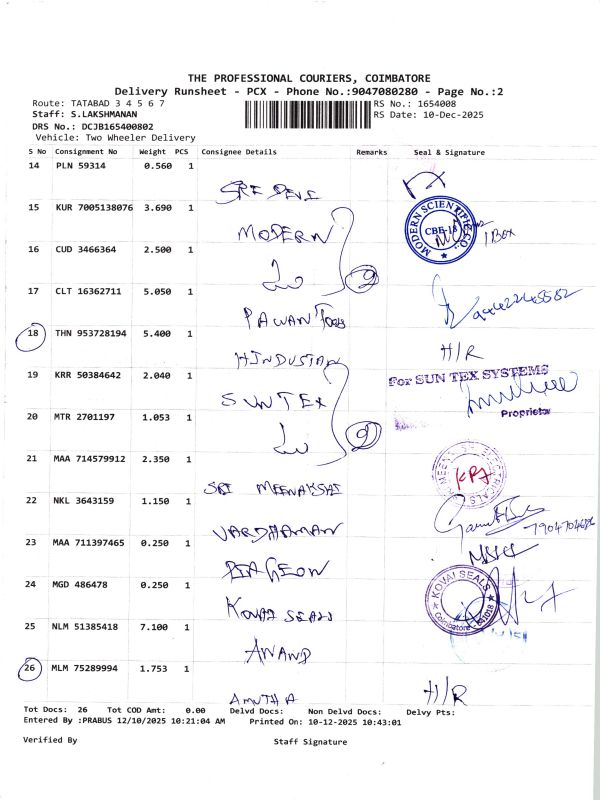 THE PROFESSIONAL COURIERS, COIMBATORE
Delivery Runsheet - PCX - Phone No.:9047080280 - Page No.:2
Route: TATABAD 3 4 5 6 7 RS No.: 1654008
Staff: S.LAKSHMANAN RS Date: 10-Dec-2025
DRS No.: DCJB165400802
Vehicle: Two Wheeler Delivery
S No Consignment No Weight PCS Consignee Details Remarks Seal & Signature
14 PLN 59314 0.560 1
SRE DEVI
15 KUR 7005138076 3.690 1
MODERN
MODERN SCIENTIFIC CO. CBE-18
1 Box
16 CUD 3466364 2.500 1
2
17 CLT 16362711 5.050 1
PAWAN Tools
18 THN 953728194 5.400 1
HINDUSTAN H/R
19 KRR 50384642 2.040 1
For SUN TEX SYSTEMS
SUNTEX
Proprietor
20 MTR 2701197 1.053 1
2
21 MAA 714579912 2.350 1
SRI MEENAKSHI
22 NKL 3643159 1.150 1
VARDHAMAN
23 MAA 711397465 0.250 1
24 MGD 486478 0.250 1
KOVAI SEALS
KOVAI SEALS Coimbatore - 641018
25 NLM 51385418 7.100 1
ANAND
26 MLM 75289994 1.753 1
AMUTHA H/R
Tot Docs: 26 Tot COD Amt: 0.00 Delvd Docs: Non Delvd Docs: Delvy Pts:
Entered By :PRABUS 12/10/2025 10:21:04 AM Printed On: 10-12-2025 10:43:01
Verified By Staff Signature